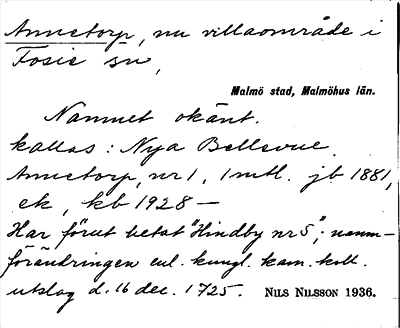 Annetorp, nu villaområde i
Fosie sn,
Malmö stad, Malmöhus län.
Namnet okänt.
kallas: Nya Bellevue
Annetorp, nr 1, 1 mtl. jb 1881,
ek, kb 1928 —
Har förut hetat "Hindby nr 5"; namn-
förändringen enl. kungl. kam. koll.
utslag d. 16 dec. 1725. NILS NILSSON 1936.